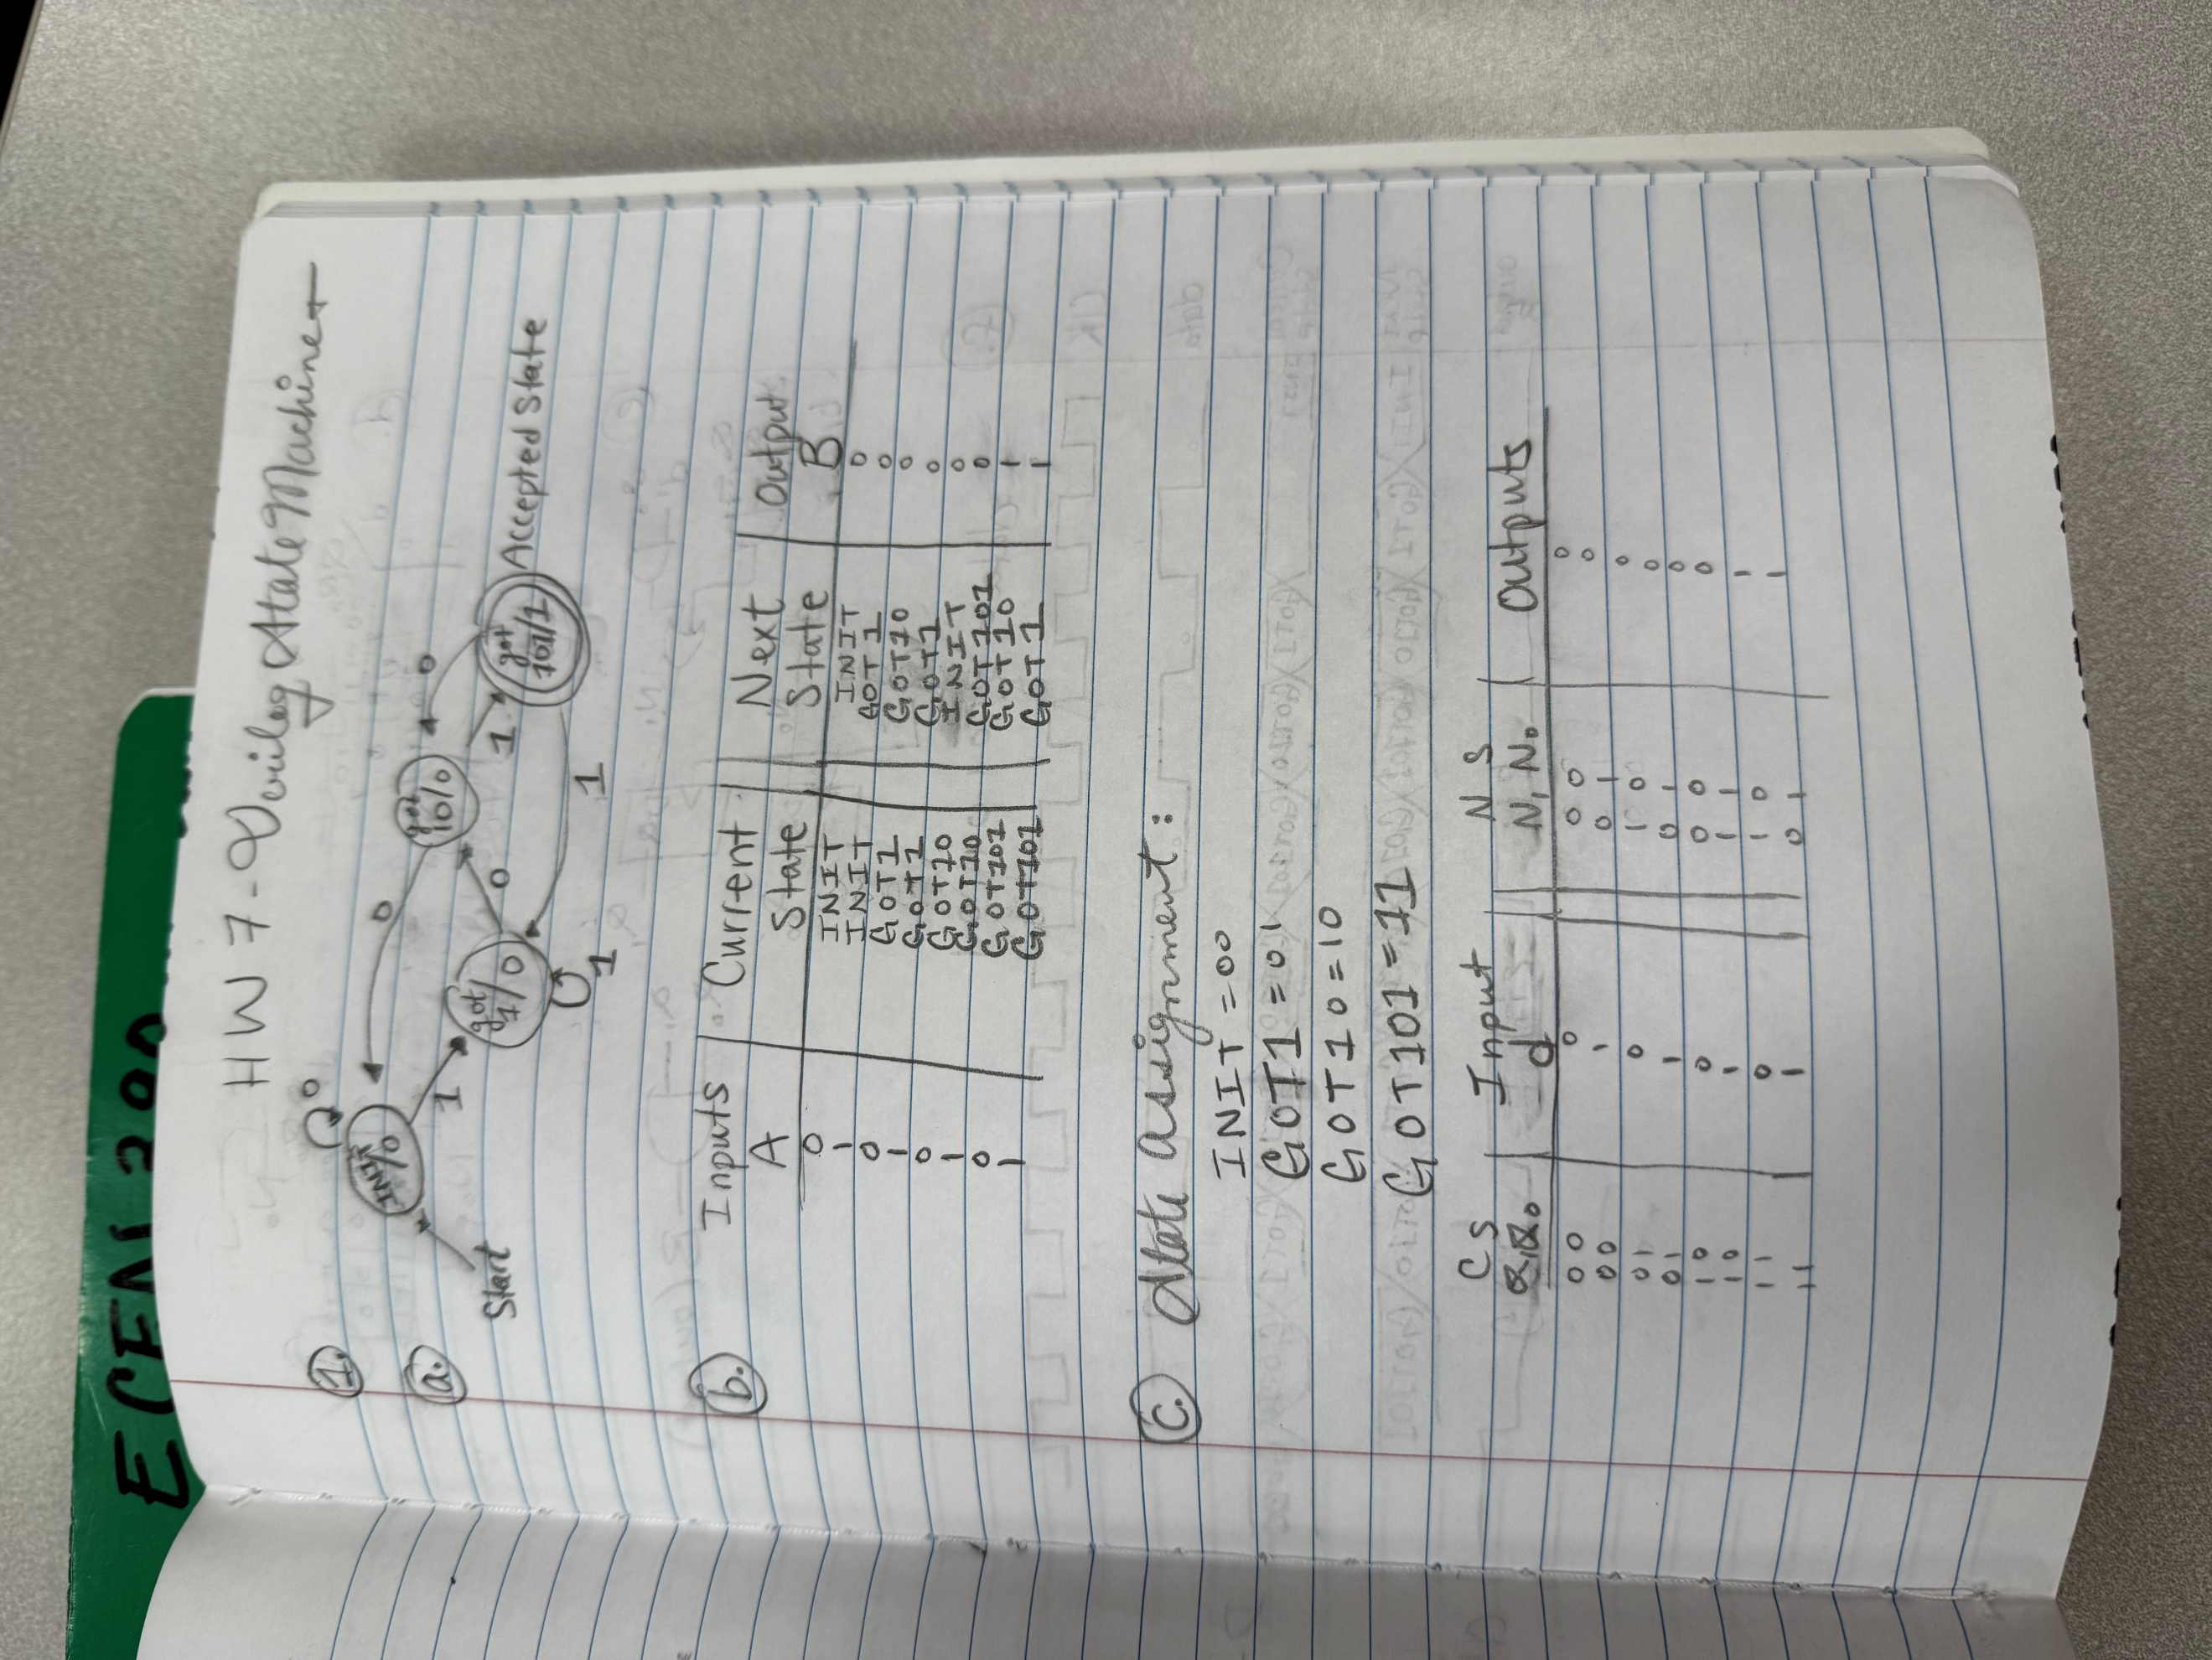 ECEN
HW 7 - Verilog State Machine
1.
a.
Start
INIT/0
0
1
got 1/0
1
0
got 10/0
0
1
got 101/1
0
1
Accepted State
b.
Inputs | Current | Next | Output
A | State | State | B
0 | INIT | INIT | 0
1 | INIT | GOT1 | 0
0 | GOT1 | GOT10 | 0
1 | GOT1 | GOT1 | 0
0 | GOT10 | INIT | 0
1 | GOT10 | GOT101 | 0
0 | GOT101 | GOT10 | 1
1 | GOT101 | GOT1 | 1
C. State Assignment:
INIT = 00
GOT1 = 01
GOT10 = 10
GOT101 = 11
CS | Input | NS | Outputs
Q1Q0 | d | N1 N0
0 0 | 0 | 0 0 | 0
0 0 | 1 | 0 1 | 0
0 1 | 0 | 1 0 | 0
0 1 | 1 | 0 1 | 0
1 0 | 0 | 0 0 | 0
1 0 | 1 | 1 1 | 0
1 1 | 0 | 1 0 | 1
1 1 | 1 | 0 1 | 1